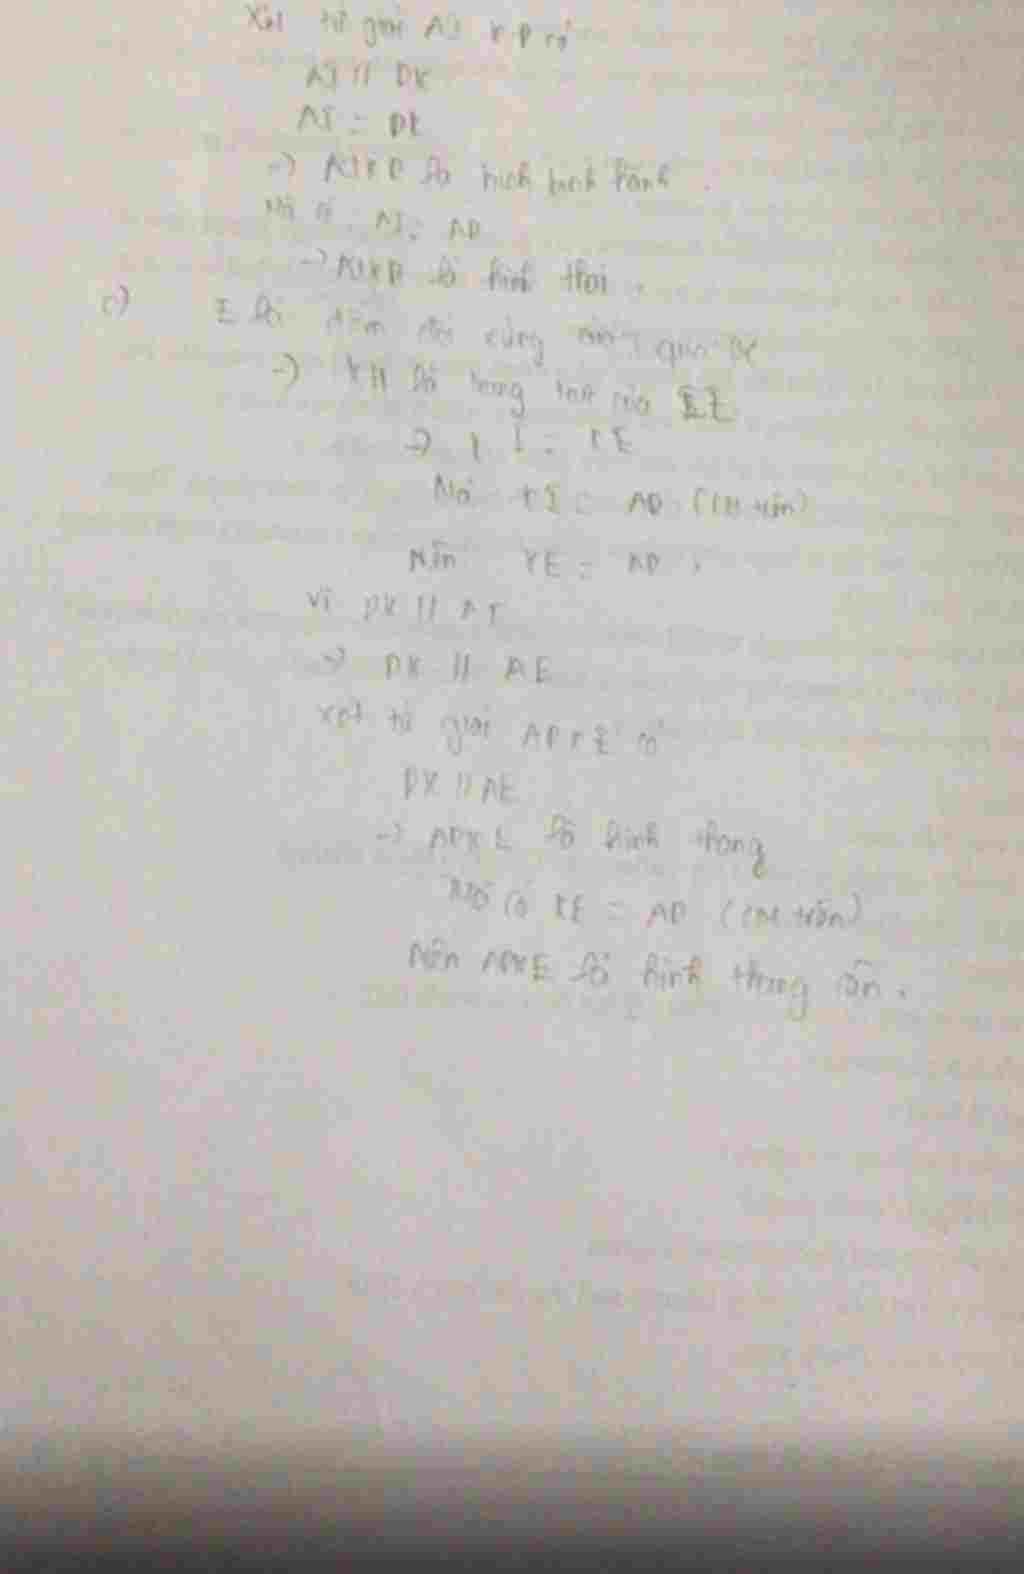 Xét tứ giác AIKD có
AI // DK
AI = DK
-> AIKD là hình bình hành.
Mà có AI = AD
-> AIKD là hình thoi.
c) E là điểm đối xứng qua
-> KH là trung trực của EI
-> KI = KE
Mà KI = AD (CM trên)
Nên KE = AD.
Vì DK // AI
-> DK // AE
Xét tứ giác ADKE có
DK // AE
-> ADKE là hình thang
Mà có KE = AD (CM trên)
Nên ADKE là hình thang cân.